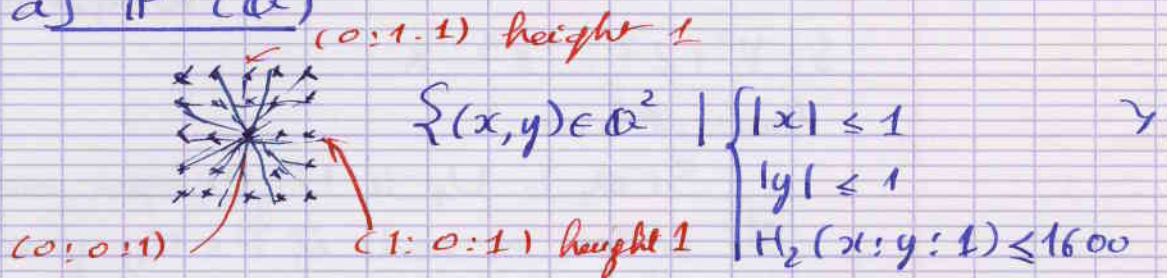 a) P (Q)
(0:1.1) height 1
{(x,y) ∈ Q² | { |x| ≤ 1
|y| ≤ 1
H₂(x:y:1) ≤ 1600
}
(0:0:1)
(1:0:1) height 1